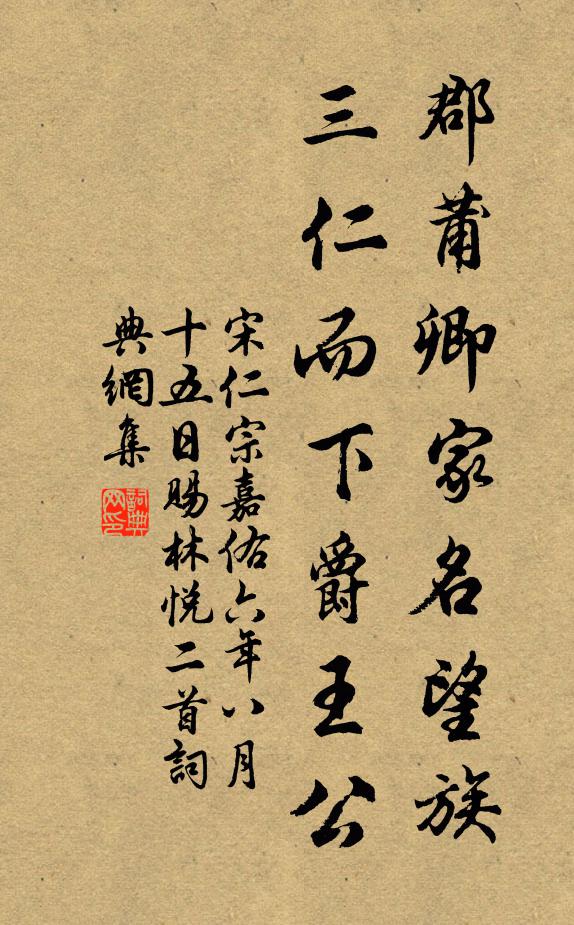 郡莆卿家名望族
三仁而下爵王公
宋仁宗嘉佑六年八月
十五日賜林悅二首詞
典網集
詞典网印